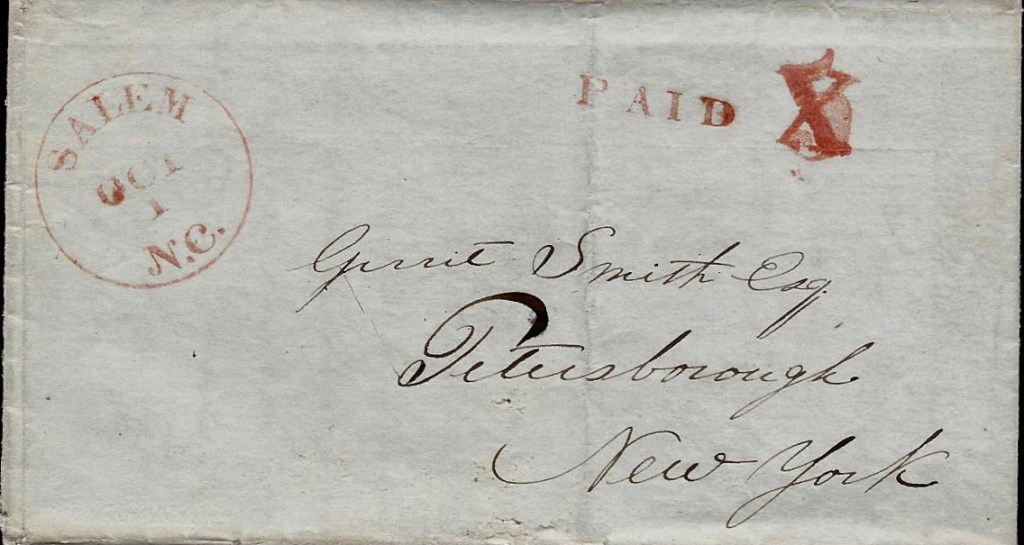 SALEM
OCT
1
N.C.
PAID X
Gerrit Smith Esq.
Petersborough
New York